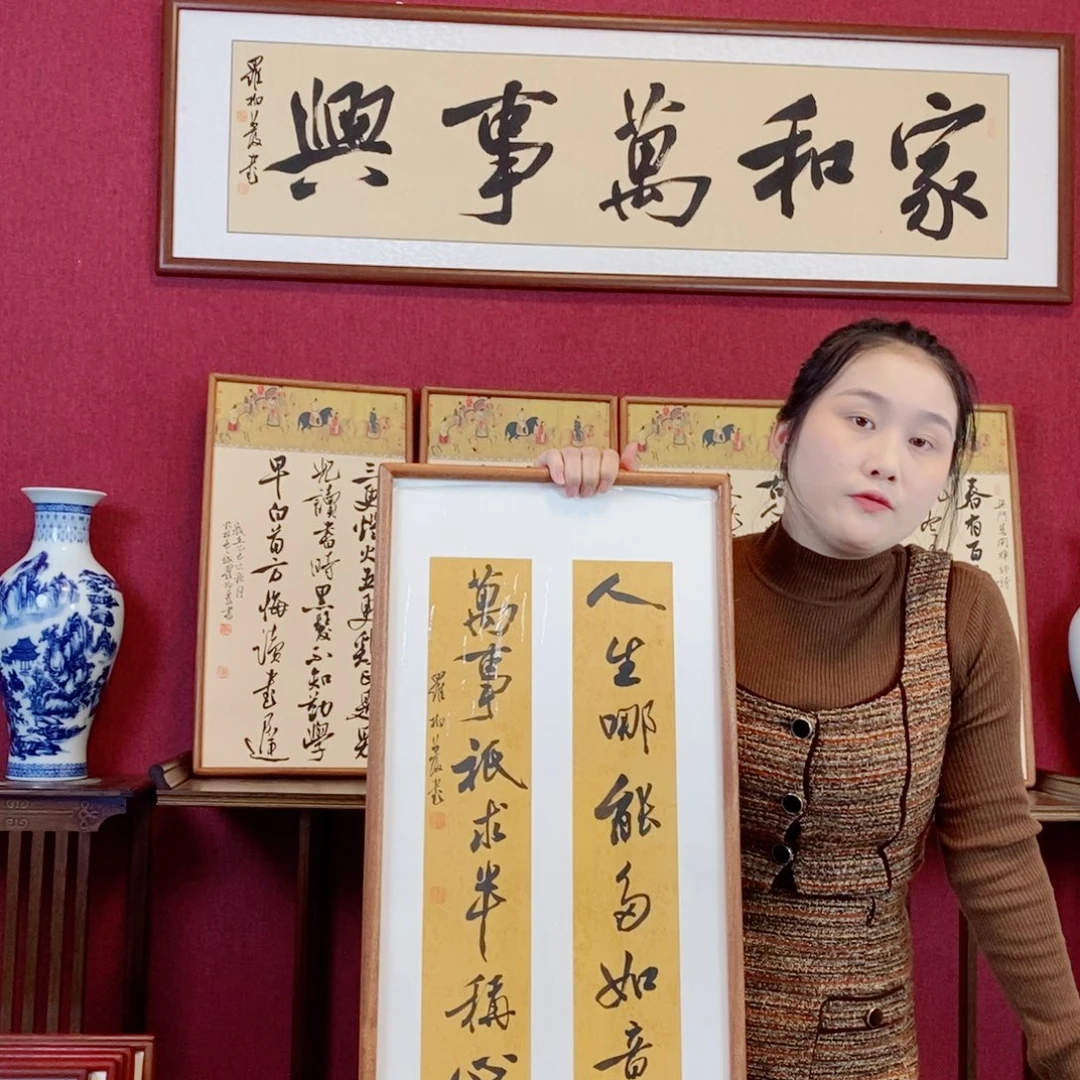 家和萬事興
人生哪能多如意
萬事祇求半稱心
三更燈火五更雞正是男
兒讀書時黑髮不知勤學
早白首方悔讀書遲
春有百